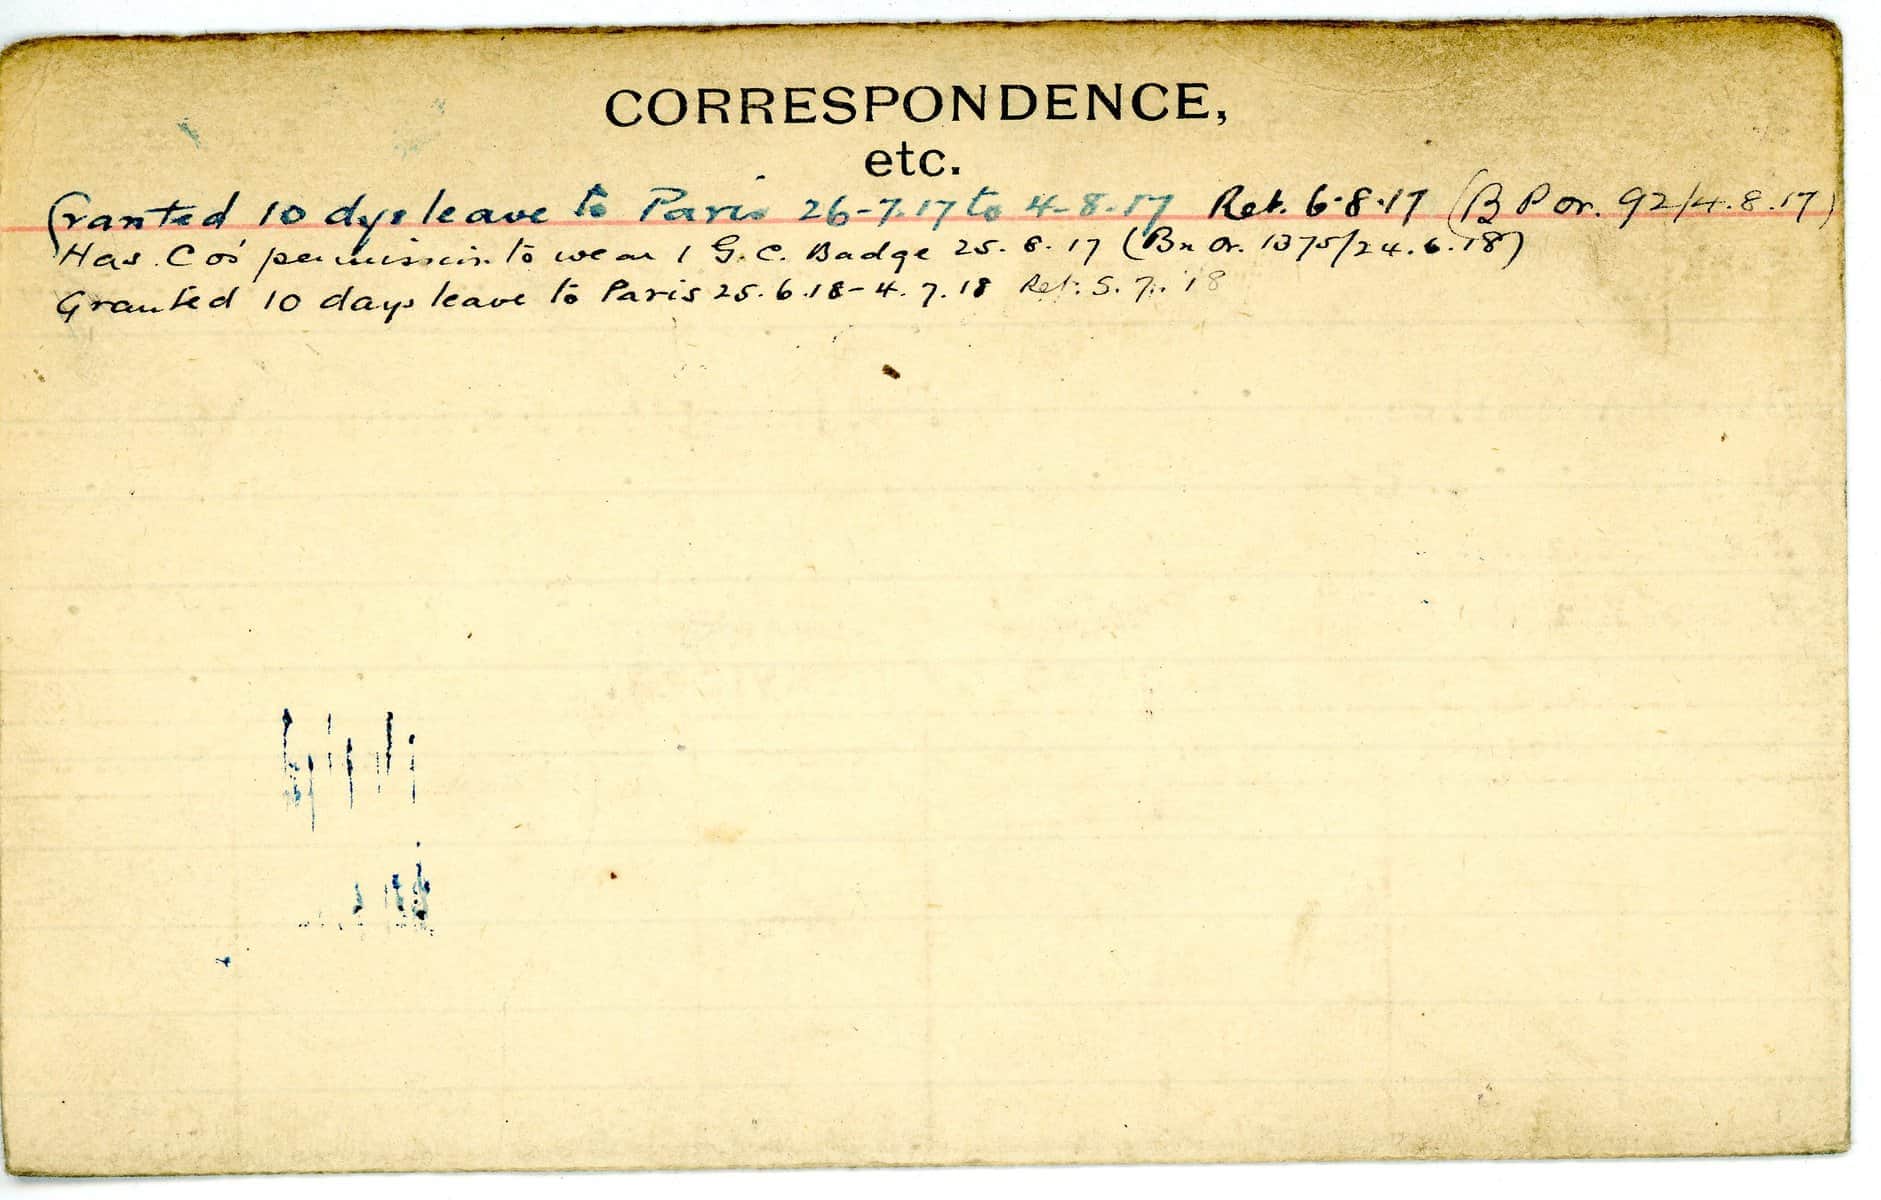 CORRESPONDENCE,
etc.
Granted 10 dys leave to Paris 26-7.17 to 4-8-17 Ret. 6.8.17 (B P or. 92/4.8.17)
Has Cos' permission to wear 1 G.C. Badge 25.8.17 (Bn Or. 1375/24.6.18)
Granted 10 days leave to Paris 25.6.18-4.7.18 Ret. 5.7.18